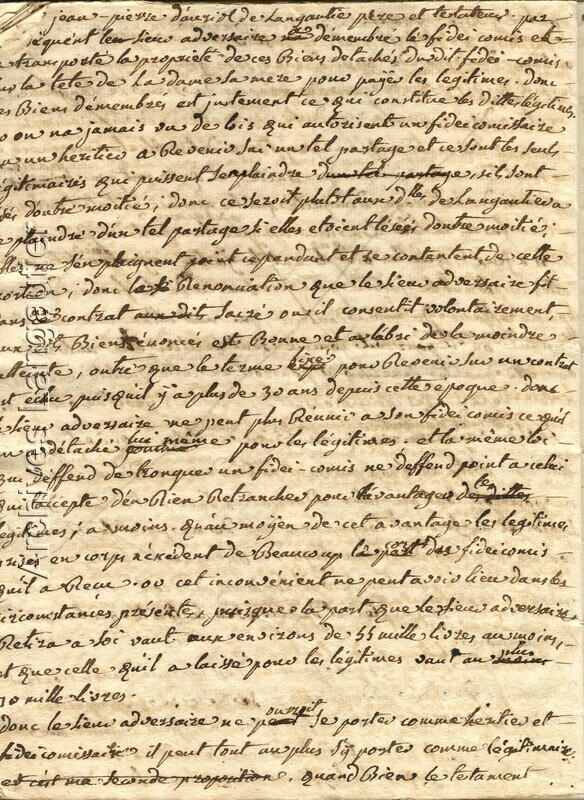 jean-pierre d'auriol de Langautie père et testateur. par
séquent le sieur adversaire a démembré le fidei comis et
a transporté la propriété de ces Biens détachés du dit fidei-comis
sur la tete de la dame sa mere pour payer les légitimes. donc
es Biens démembres est justement ce qui constitue les dittes légitimes,
on na jamais vu de lois qui autorisent un fideicomissaire
un heritier a Revenir sur un tel partage et ce sont les seuls
égitimaires qui puissent se plaindre dun tel partage, s'il sont
sés doutre moitié; donc ce seroit plutst aux dlles de Langautie a
e plaindre dun tel partage si elles etoient lésées doutre moitié;
lles ne s'en plaignent point cependant et se contentent de celle
ortion; donc la Renonciation que le sieur adversaire fit
ans contrat sacré ou il consentit volontairement,
Biens énoncés est Bonne et a labri de la moindre
atteinte, outre que le terme fixé pour Revenir sur un contrat
st echu puisquil y a plus de 30 ans depuis cette epoque. donc
e sieur adversaire ne peut plus Réunir a son fidei comis ce quil
n a détaché lui même pour les légitimes. et la même loi
qui deffend de tronquer un fidei-comis ne deffend point a celui
qui l'accepte d'en Rien Retrancher pour l'avantage des dittes
légitimes; a moins. qu'au moyen de cet avantage les legitimes
rises en corps n'excédent de Beaucoup la part des fideicomis
quil a Recu. or cet inconvénient ne peut avoir lieu dans les
circomstances présente, puisque la part que le sieur adversaire
Retira a soi vaut aux environs de 55 mille livres au moins,
et que celle qu'il a laissé pour les légitimes vaut au plus
10 mille livres.
donc le sieur adversaire ne pouvoit se porter comme héritier et
fidei comissaire il peut tout au plus s'y porter comme légitimaire
et c'est ma seconde proposition. quand Bien le testament
Archives Languedoc